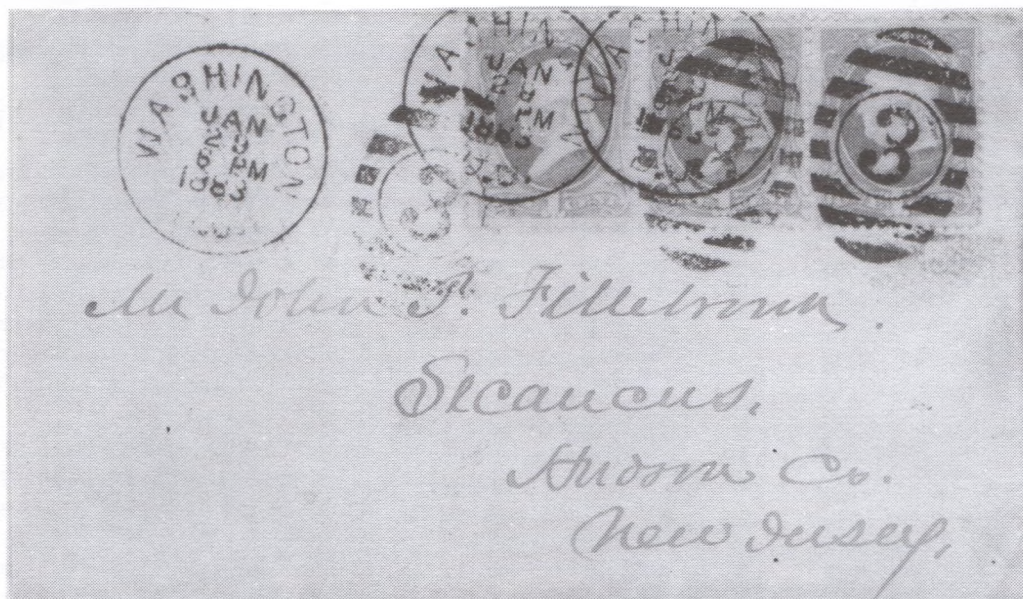 WASHINGTON
JAN
28
8 PM
1883
D.C.
WASHINGTON
JAN
28
8 PM
1883
D.C.
WASHINGTON
3
3
3
Mr John P. Fillebrown.
Secaucus,
Hudson Co.
New Jersey,